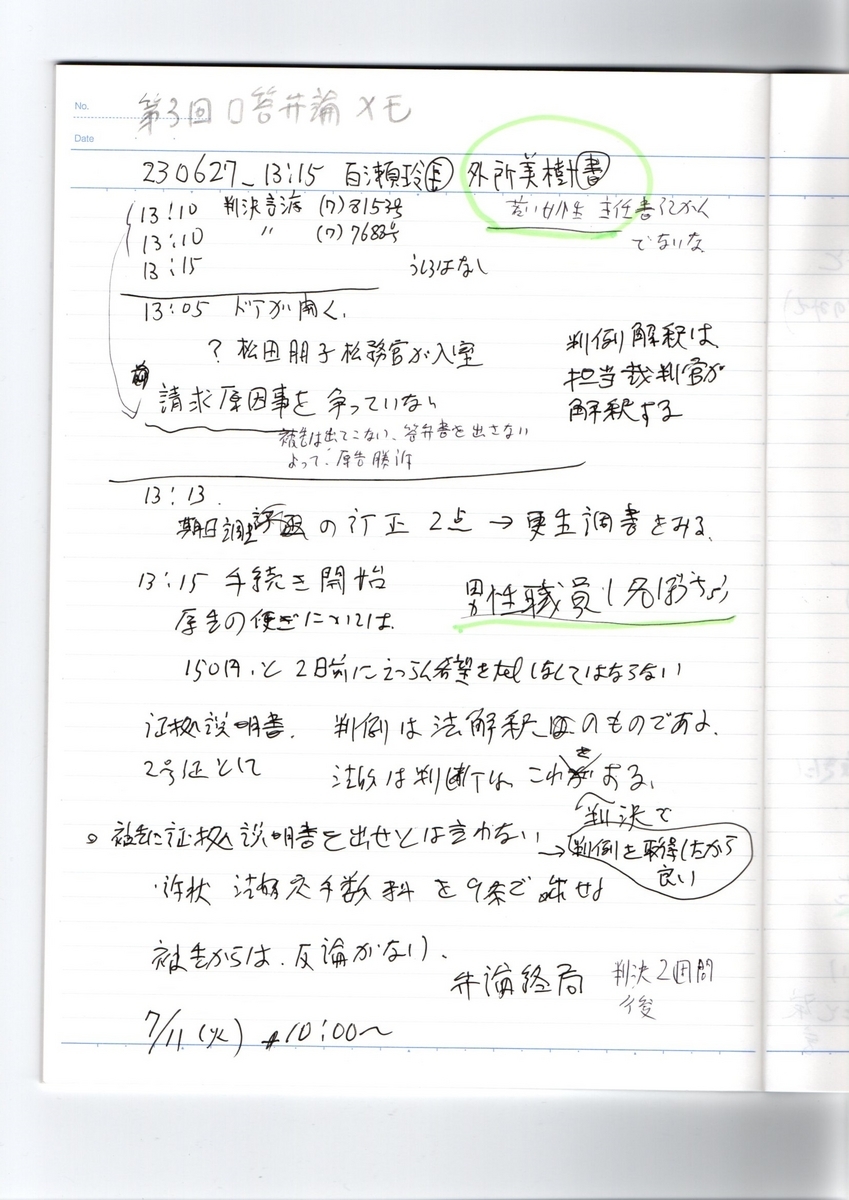 No.
第3回口答弁論メモ
Date
230627_13:15 百瀬玲 外所美樹 書
若い女性 主任書記かん
でないな
13:10 判決言渡 (ワ)8153号
13:10 〃 (ワ)7688号
13:15 うしろはなし
13:05 ドアが開く、
? 松田朋子松務官が入室
請求原因事を争っていない
被告は出てこない、答弁書を出さない
よって、原告勝訴
判例解釈は
担当裁判官が
解釈する
13:13.
期日調書 の訂正 2点 → 更生調書をみる、
13:15 手続き開始
男性職員1名
原告の
150円、と2日前に 希望を しなくてはならない
証拠説明書、 判例は法解釈 のものである、
2号証として
法改は判断は、これ する、
○被告に証拠説明書を出せとは言わない
判決で
→判例を取得したから
良い
・訴状 手数料を9条で 出せよ
被告からは、反論がない、
弁論終局 判決2週間
後
7/11(火) 10:00〜